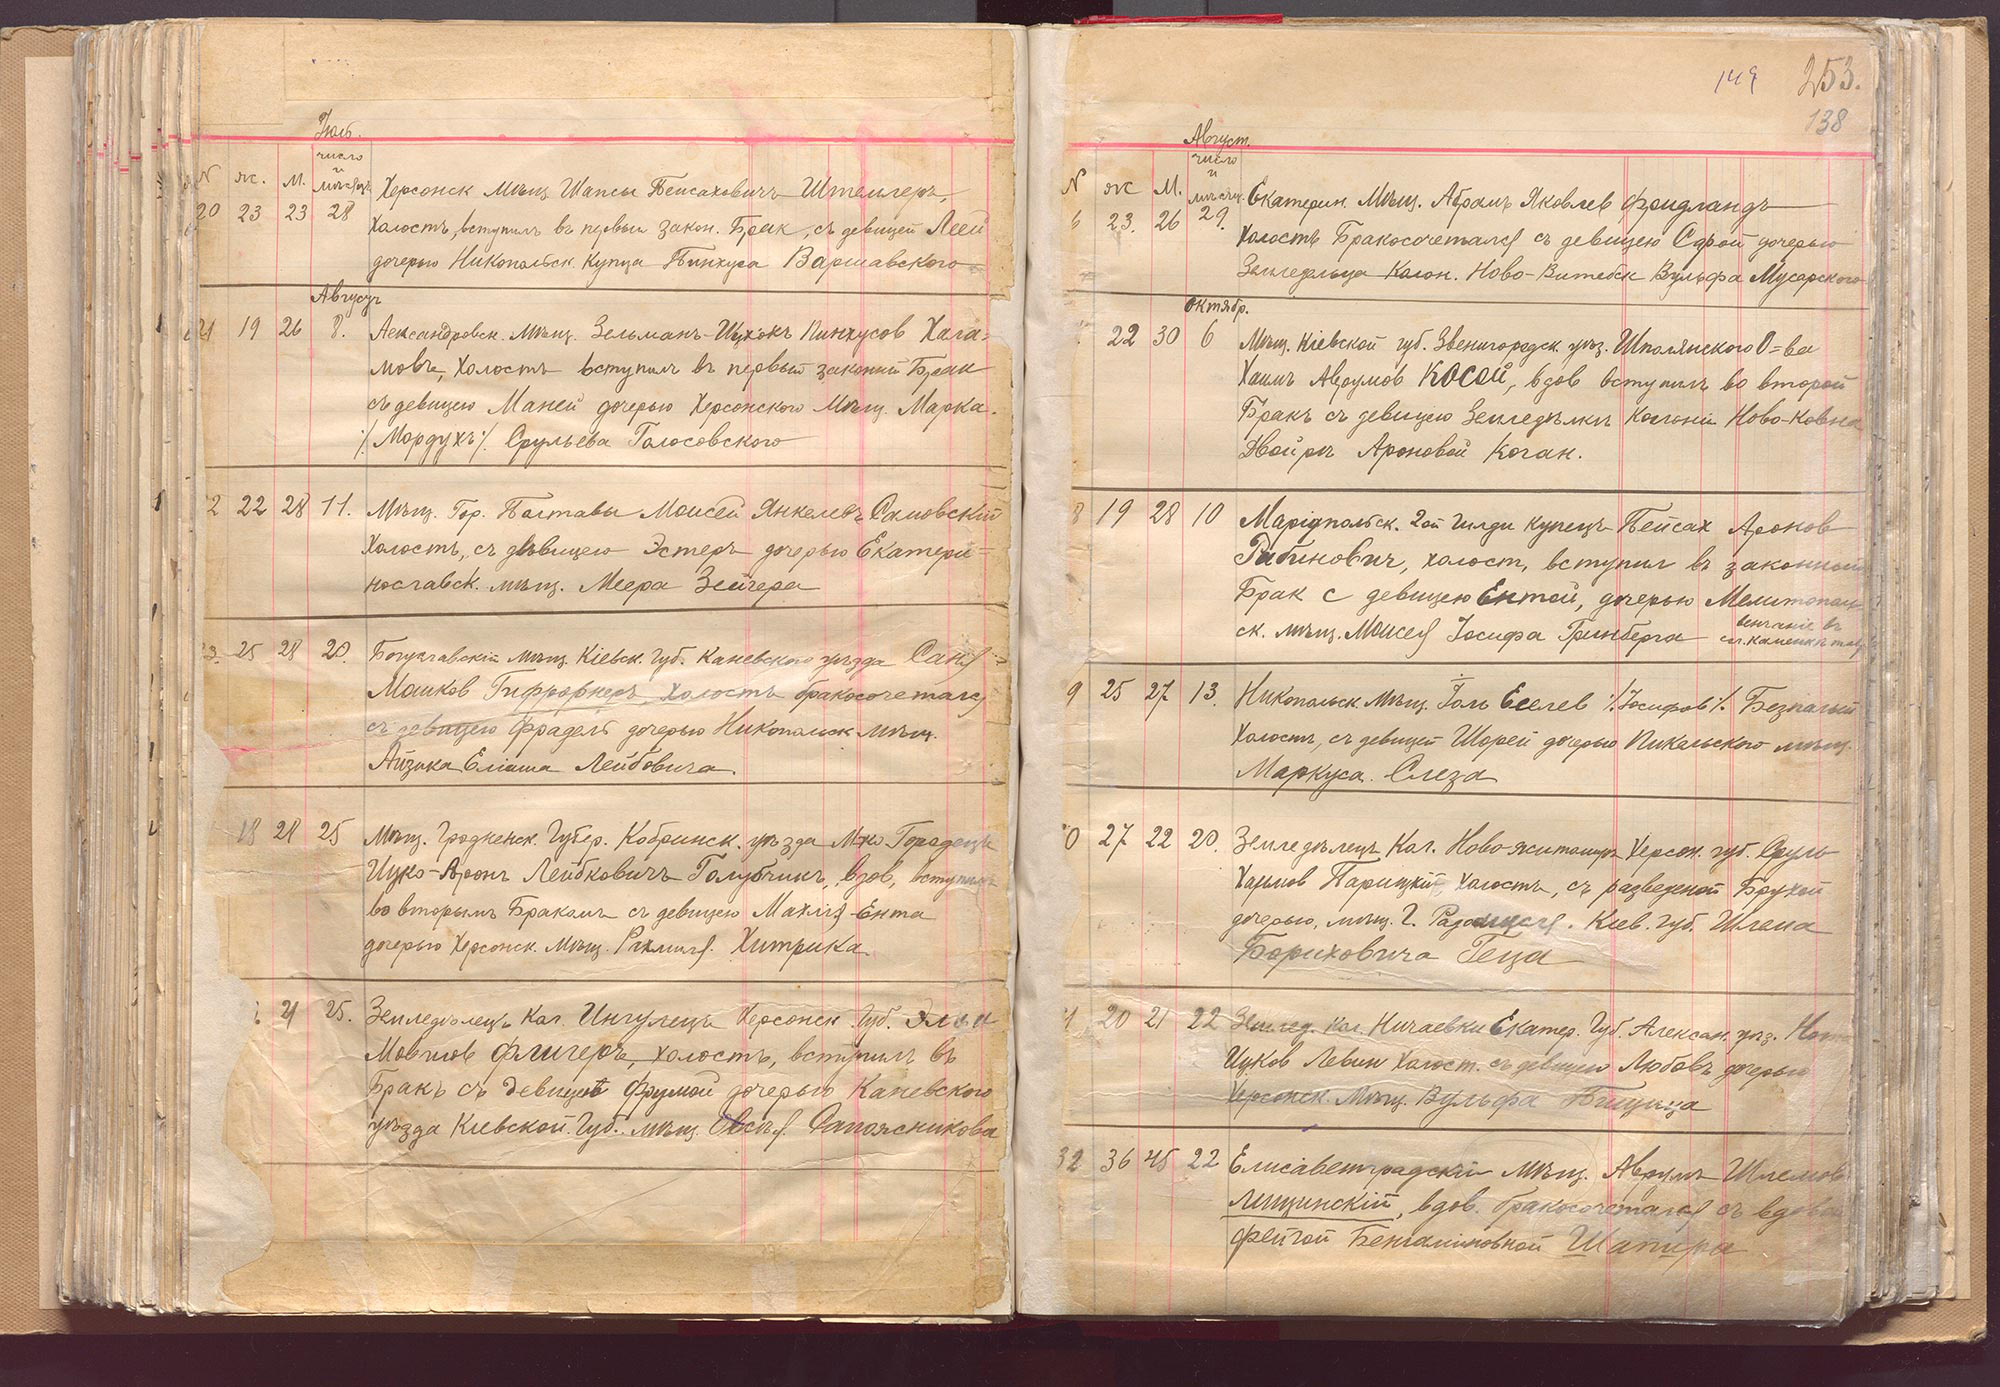 Іюль.
N ж. М. число и мѣсяцъ
Херсонск мѣщ. Шапсы Пейсаховичъ Штемлеръ,
20 23 23 28
холостъ, вступилъ въ первый закон. Бракъ, съ девицей Леей
дочерью Никопольск купца Пинхуса Варшавского
Августъ
21 19 26 8. Александровск. мѣщ. Зельманъ-Ицхокъ Пинхусов Хала=
мовъ, холостъ вступилъ въ первый законий Бракъ
съ девицею Маней дочерью Херсонского мѣщ. Марка.
/Мордухъ/. Срульева Голосовского
2 22 28 11. Мѣщ. Гор. Полтавы Моисей Янкелевъ Самовскій
холостъ, съ дѣвицею Эстеръ дочерью Екатери=
нославск. мѣщ. Меера Зейгера
23. 25 28 20. Богуславскій мѣщ. Кіевск. Губ. Каневского уѣзда
Мошков холостъ бракосочетался
съ девицею Фрадель дочерью Никопольск мѣщ.
Айзика Еліаша Лейбовича.
18 28 25 Мѣщ. Гродненск. Губер. Кобринск. уѣзда М-ко Городецъ
Ицко-Аронъ Лейбковичъ Голубчикъ, вдов, вступилъ
во вторымъ Бракомъ съ девицею Махля-Ента
дочерью Херсонск. мѣщ. Рахмиля Хитрика
21 25. Земледѣлецъ Кол. Ингулецъ Херсонск. Губ.
Мовшов Флигеръ, холостъ, вступилъ въ
Бракъ съ девицей Фрумой дочерью Каневского
уѣзда Кіевской. Губ. мѣщ. Овсѣя. Сапожникова
149 253.
138
Август.
N ж М. число и мѣсяц.
Екатерин. Мѣщ. Абрамъ Яковлев Фридландъ
23. 26 29.
холостъ Бракосочетался съ девицею Сарой дочерью
Земледѣльца Колон. Ново-Витебск Вульфа Мусарского
Октябр.
22 30 6 Мѣщ. Кіевской губ. Звенигородск. уѣз. Шполянского О=ва
Хаимъ Аврумов Косой, вдов вступилъ во второй
Бракъ съ девицею Земледѣлки Колоніи Ново-Ковна
Двойрѣ Ароновой Коган.
8 19 28 10 Маріупольск. 2ой Гилди купецъ Пейсах Аронов
Рабинович, холост, вступил въ законный
Брак с девицею Ентой, дочерью Мелитополь
ск. мѣщ. Моисея Іосифа Гринберга венчаніе въ
с. Каменкѣ
9 25 27 13. Никопольск. мѣщ. Еселев /Іосифов/. Безпалый
холостъ, съ девицей Шорей дочерью Никопольского мѣщ.
Маркуса. Слеза
0 27 22 20. Земледѣлецъ Кол. Ново-Житомиръ Херсон. губ. Сруль
Хаимов Парицкій, холостъ, съ разведеной Брухой
дочерью, мѣщ. Г. Радомысля. Кіев. Губ. Шлема
Бориховича Геца
20 21 22 Землед. Кол. Ничаевки Екатер. Губ. Александ. уѣз.
Ицков Левин холост. съ девицею Любовъ дочерью
Херсонск. Мѣщ. Вульфа
32 36 45 22 Елисаветградскій мѣщ. Аврумъ Шлемов
Лещинскій, вдов. бракосочетался съ вдовой
Фейгой Беніаминовной Шапиро